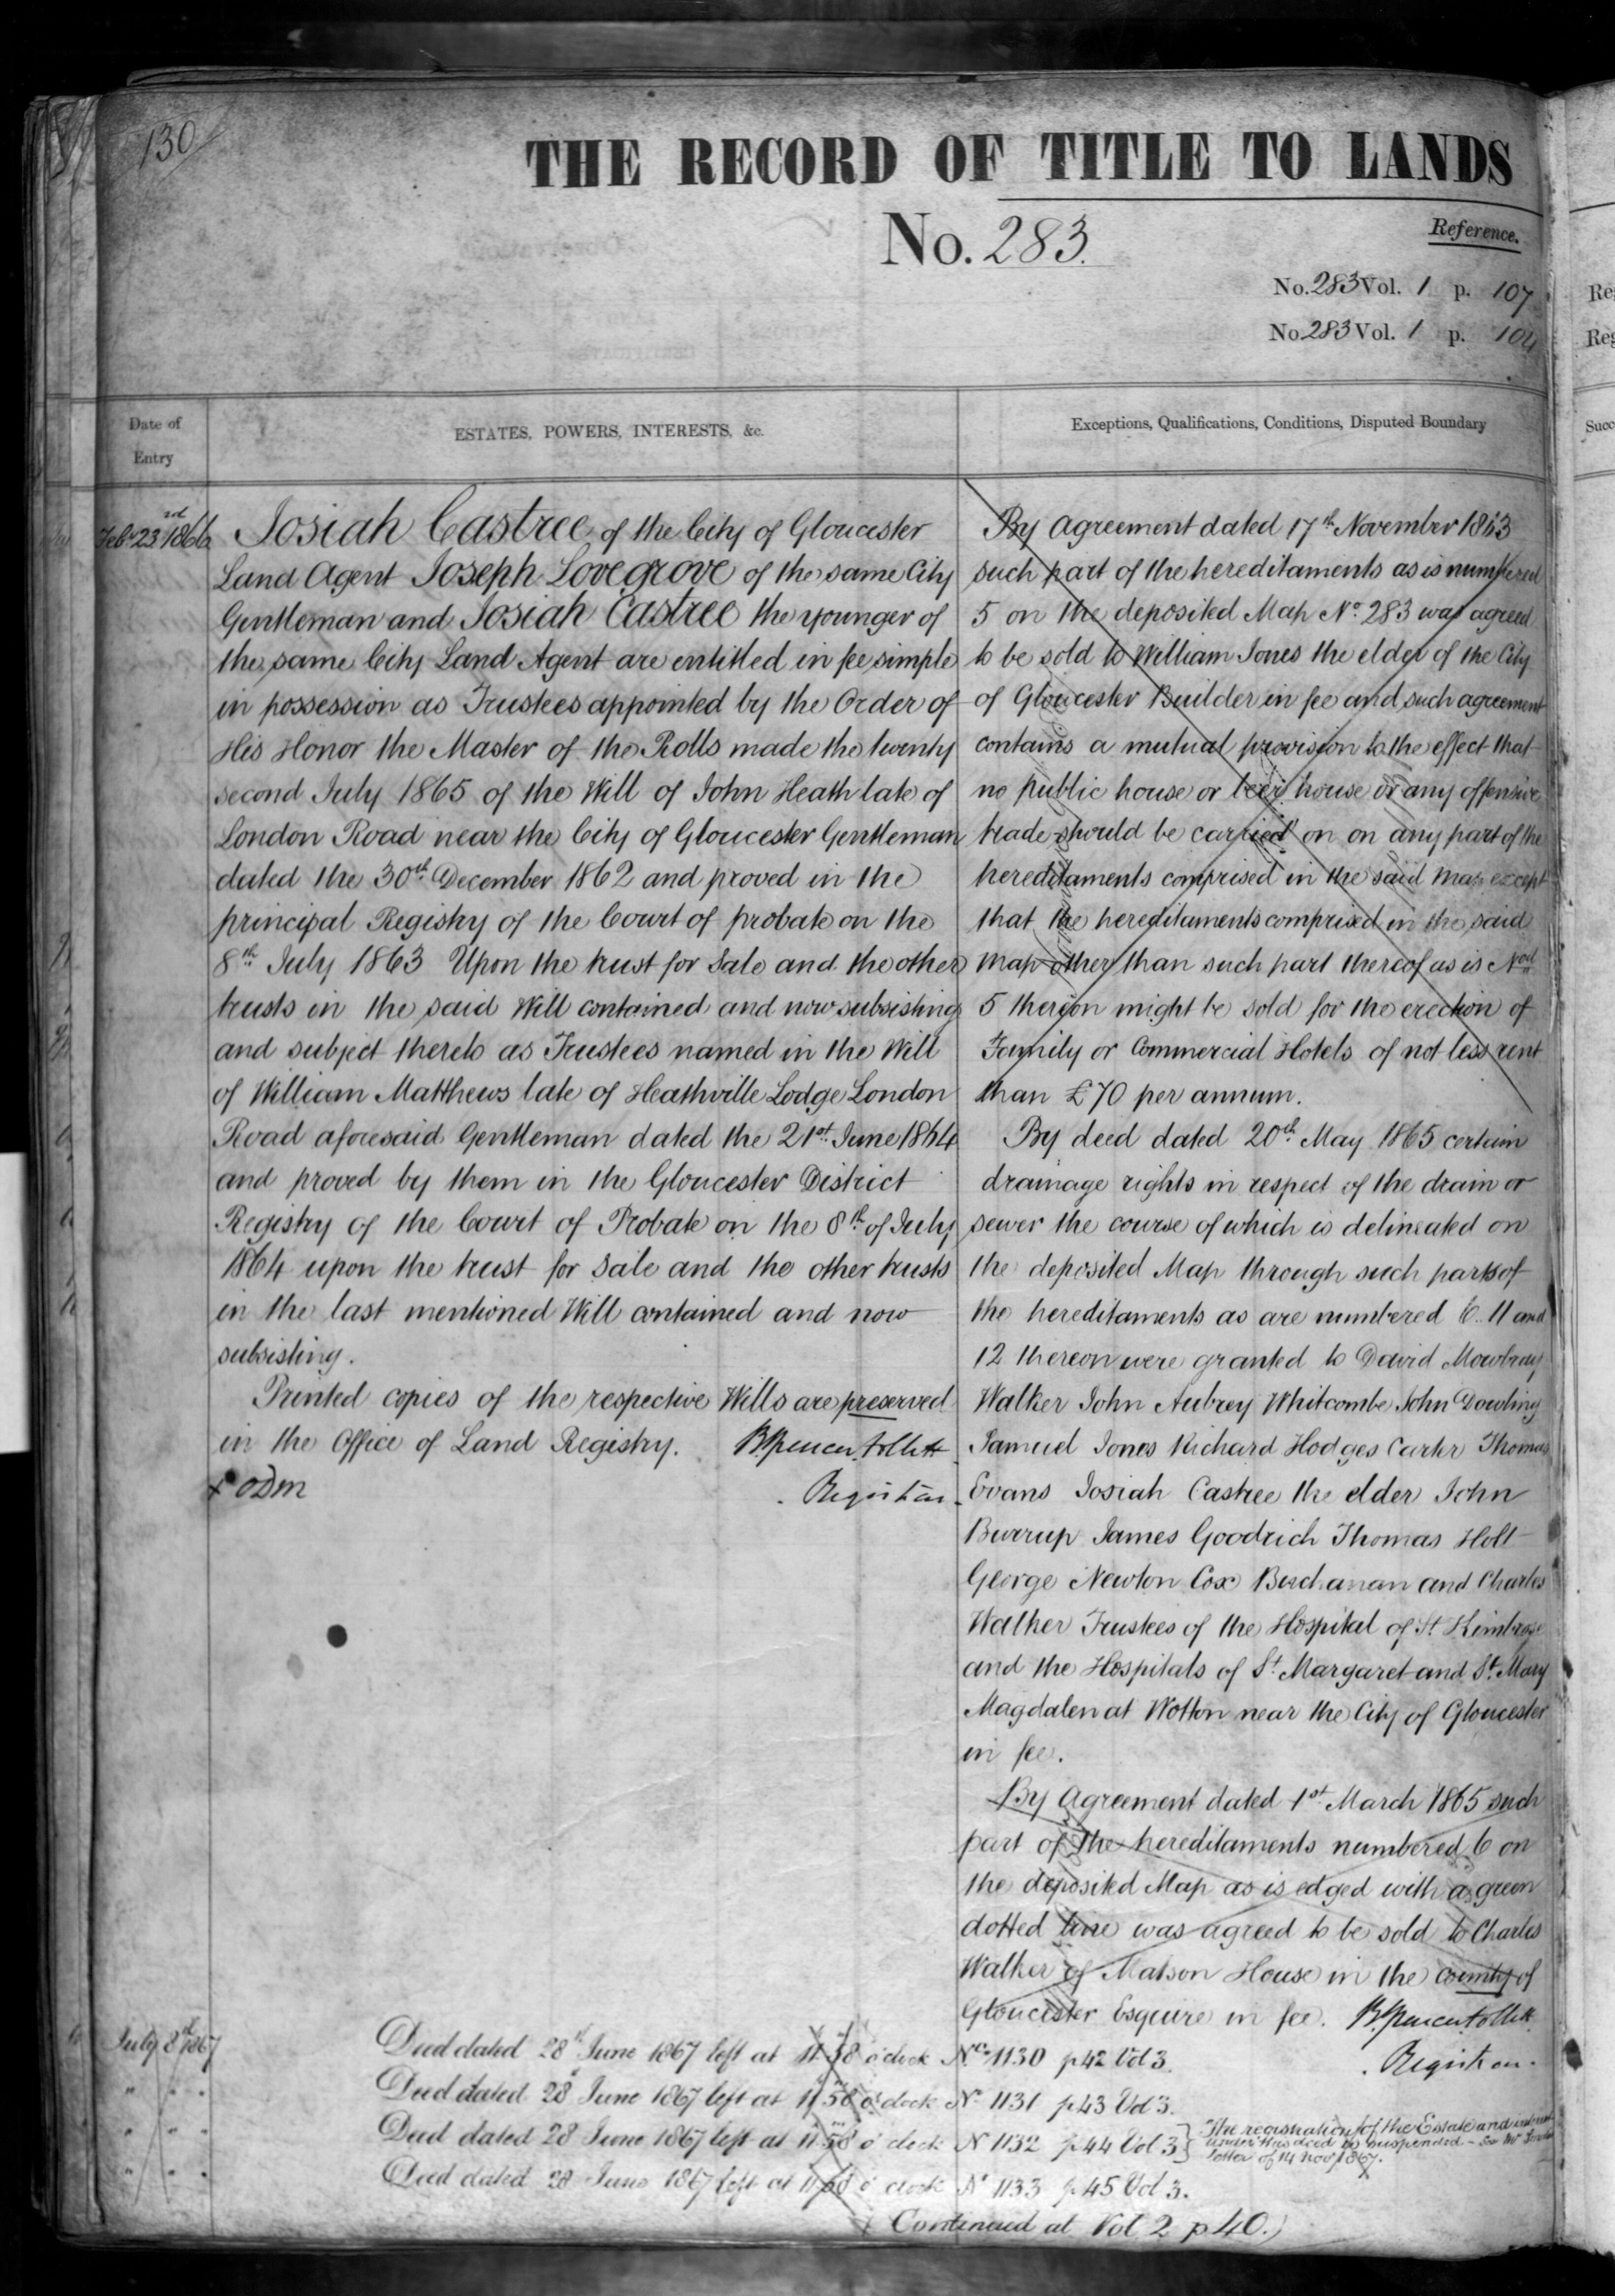 130
THE RECORD OF TITLE TO LANDS
No. 283.
Reference.
No. 283 Vol. 1 p. 107
No 283 Vol. 1 p. 104
Date of Entry
ESTATES, POWERS, INTERESTS, &c.
Exceptions, Qualifications, Conditions, Disputed Boundary
Feb. 23rd 1866
Josiah Castree of the City of Gloucester
Land Agent Joseph Lovegrove of the same City
Gentleman and Josiah Castree the younger of
the same City Land Agent are entitled in fee simple
in possession as Trustees appointed by the Order of
His Honor the Master of the Rolls made the twenty
second July 1865 of the Will of John Heath late of
London Road near the City of Gloucester Gentleman
dated the 30th December 1862 and proved in the
principal Registry of the Court of probate on the
8th July 1863 Upon the trust for Sale and the other
trusts in the said Will contained and now subsisting
and subject thereto as Trustees named in the Will
of William Matthews late of Heathville Lodge London
Road aforesaid Gentleman dated the 21st June 1864
and proved by them in the Gloucester District
Registry of the Court of Probate on the 8th of July
1864 upon the trust for Sale and the other trusts
in the last mentioned Will contained and now
subsisting.
Printed copies of the respective Wills are preserved
in the Office of Land Registry. B Spencer Follett
Registrar
By Agreement dated 17th November 1863
such part of the hereditaments as is numbered
5 on the deposited Map No. 283 was agreed
to be sold to William Jones the elder of the City
of Gloucester Builder in fee and such agreement
contains a mutual provision to the effect that
no public house or beer house or any offensive
trade should be carried on on any part of the
hereditaments comprised in the said map except
that the hereditaments comprised in the said
map other than such part thereof as is Nod
5 thereon might be sold for the erection of
Family or Commercial Hotels of not less rent
than £70 per annum.
By deed dated 20th May 1865 certain
drainage rights in respect of the drain or
sewer the course of which is delineated on
the deposited Map through such parts of
the hereditaments as are numbered 6. 11 and
12 thereon were granted to David Mowbray
Walker John Aubrey Whitcombe John Dowling
Samuel Jones Richard Hodges Carter Thomas
Evans Josiah Castree the elder John
Burrup James Goodrich Thomas Holt
George Newton Cox Buchanan and Charles
Walker Trustees of the Hospital of St. Kimbrose
and the Hospitals of St. Margaret and St. Mary
Magdalen at Wotton near the City of Gloucester
in fee.
By Agreement dated 1st March 1865 such
part of the hereditaments numbered 6 on
the deposited Map as is edged with a green
dotted line was agreed to be sold to Charles
Walker of Matson House in the county of
Gloucester Esquire in fee. B Spencer Follett
Registrar.
July 8th 1867 Deed dated 28th June 1867 left at 11 58 o'clock No. 1130 p 42 Vol 3.
" " " Deed dated 28 June 1867 left at 11 58 o'clock No 1131 p 43 Vol 3.
" " " Deed dated 28 June 1867 left at 11 58 o'clock No 1132 p 44 Vol 3
The registration of the Estate and interest
under this deed is suspended - See Mr
letter of 14 Nov 1867.
" " " Deed dated 28 June 1867 left at 11 58 o'clock No 1133 p 45 Vol 3.
(Continued at Vol 2 p 40.)
Re
Reg
Succ